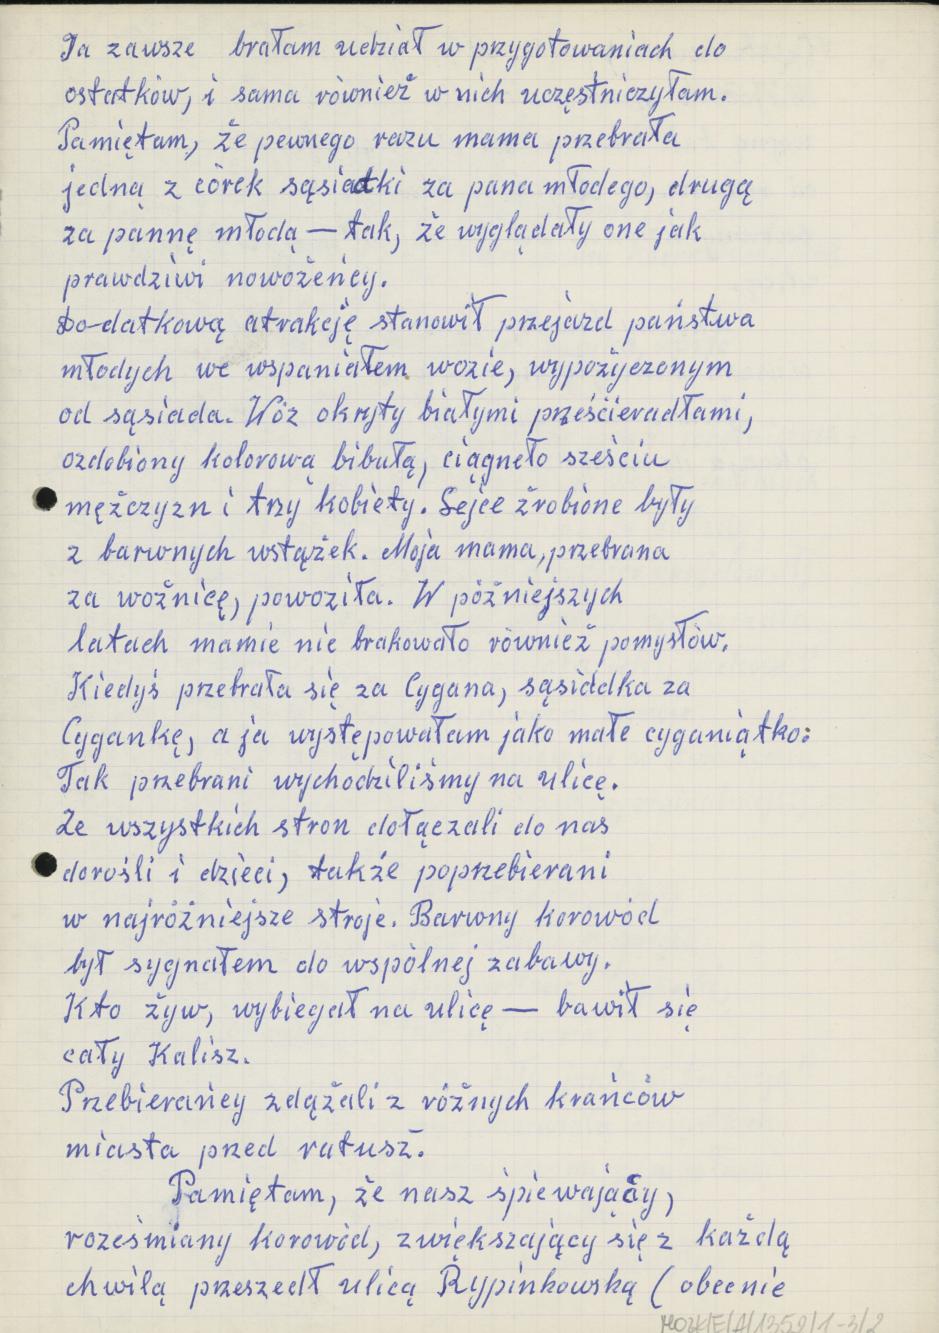 Ja zawsze brałam udział w przygotowaniach do
ostatków, i sama również w nich uczęstniczyłam.
Pamiętam, że pewnego razu mama przebrała
jedną z córek sąsiadki za pana młodego, drugą
za pannę młodą — tak, że wyglądały one jak
prawdziwi nowożeńcy.
Do-datkową atrakcję stanowił przejazd państwa
młodych we wspaniałem wozie, wypożyczonym
od sąsiada. Wóz okryty białymi prześcieradłami,
ozdobiony kolorową bibułą, ciągneło sześciu
mężczyzn i trzy kobiety. Lejce zrobione były
z barwnych wstążek. Moja mama, przebrana
za woźnicę, powoziła. W późniejszych
latach mamie nie brakowało również pomysłów.
Kiedyś przebrała się za Cygana, sąsiadka za
Cygankę, a ja występowałam jako małe cyganiątko:
Tak przebrani wychodziliśmy na ulicę.
Ze wszystkich stron dołączali do nas
dorośli i dzieci, także poprzebierani
w najróżniejsze stroje. Barwny korowód
był sygnałem do wspólnej zabawy.
Kto żyw, wybiegał na ulicę — bawił się
cały Kalisz.
Przebierańcy zdążali z różnych krańców
miasta przed ratusz.
Pamiętam, że nasz śpiewający,
roześmiany korowód, zwiększający się z każdą
chwilą przeszedł ulicą Rypinkowską (obecnie
MOZK/E/A/1359/1-3/2